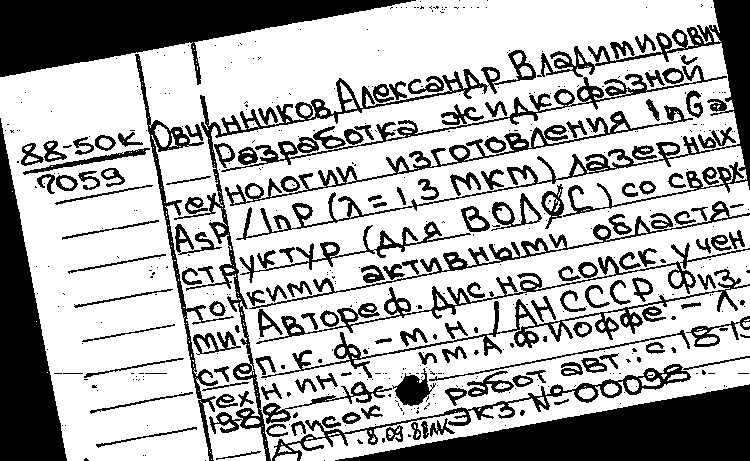 88-50К
7059
Овчинников, Александр Владимирович
Разработка жидкофазной
технологии изготовления InGa-
AsP/InP (λ=1,3 мкм) лазерных
структур (для ВОЛС) со сверх-
тонкими активными областя-
ми: Автореф. дис. на соиск. учен
степ. к. ф.-м. н. / АН СССР Физ.-
тех. ин-т им. А. Ф. Иоффе. - Л.
1988. - 19с
Список работ авт.: с. 18-19
ДСП. 8.09.88 Экз. № 00098.